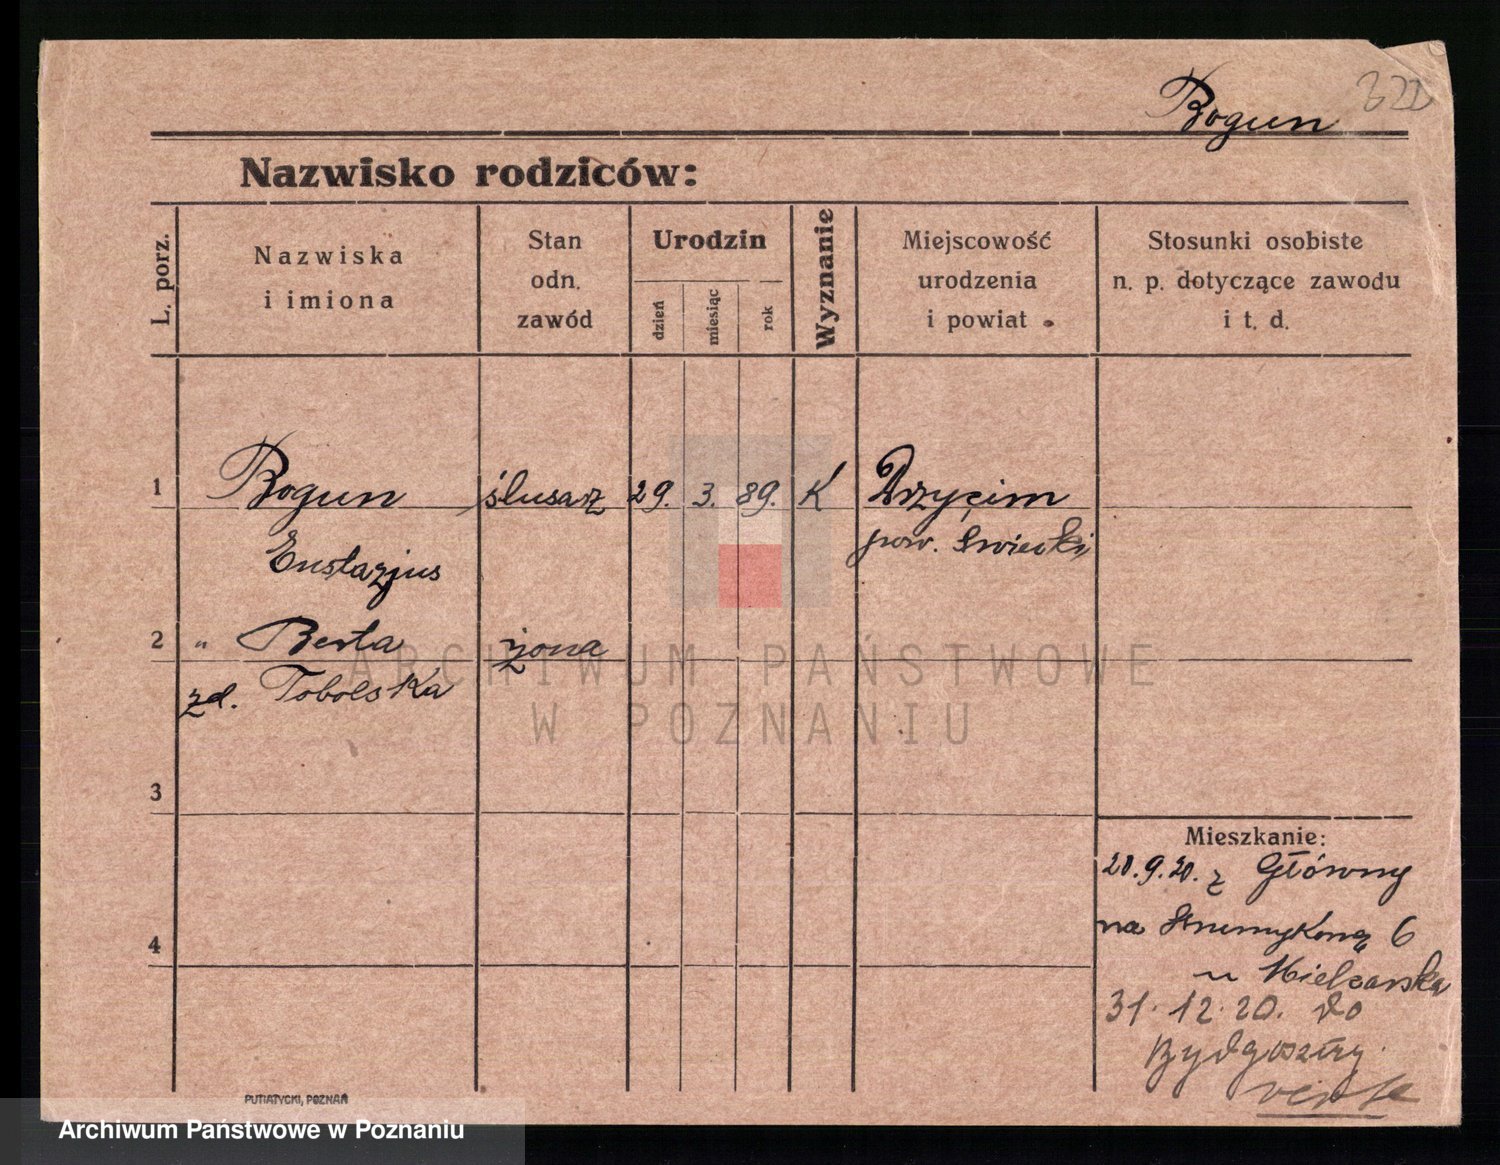 Bogun
Nazwisko rodziców:
L. porz.
Nazwiska
i imiona
Stan
odn.
zawód
Urodzin
dzień
miesiąc
rok
Wyznanie
Miejscowość
urodzenia
i powiat
Stosunki osobiste
n. p. dotyczące zawodu
i t. d.
1 Bogun ślusarz 29. 3. 89. K Drzycim
Eustazjus pow. Swiecki
2 " Berta żona
zd. Tobolska
3
4
Mieszkanie:
20.9.20. z Główny
na Strumykową 6
u Mielcarska
31.12.20. do
Bydgoszczy.
PUTIATYCKI, POZNAŃ
ARCHIWUM PAŃSTWOWE
W POZNANIU
Archiwum Państwowe w Poznaniu